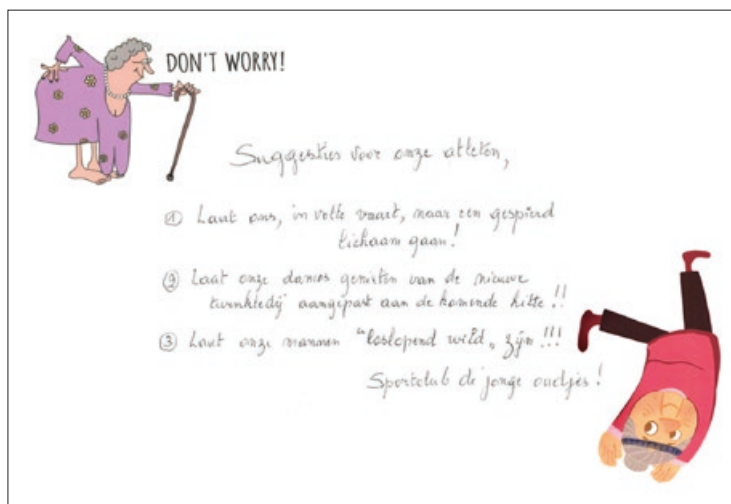 DON'T WORRY!
Suggesties voor onze atleten,
① Laat ons, in volle vaart, naar een gespierd
lichaam gaan!
② Laat onze dames genieten van de nieuwe
turnkledij aangepast aan de komende hitte!!
③ Laat onze mannen "loslopend wild" zijn!!!
Sportclub de jonge oudjes!